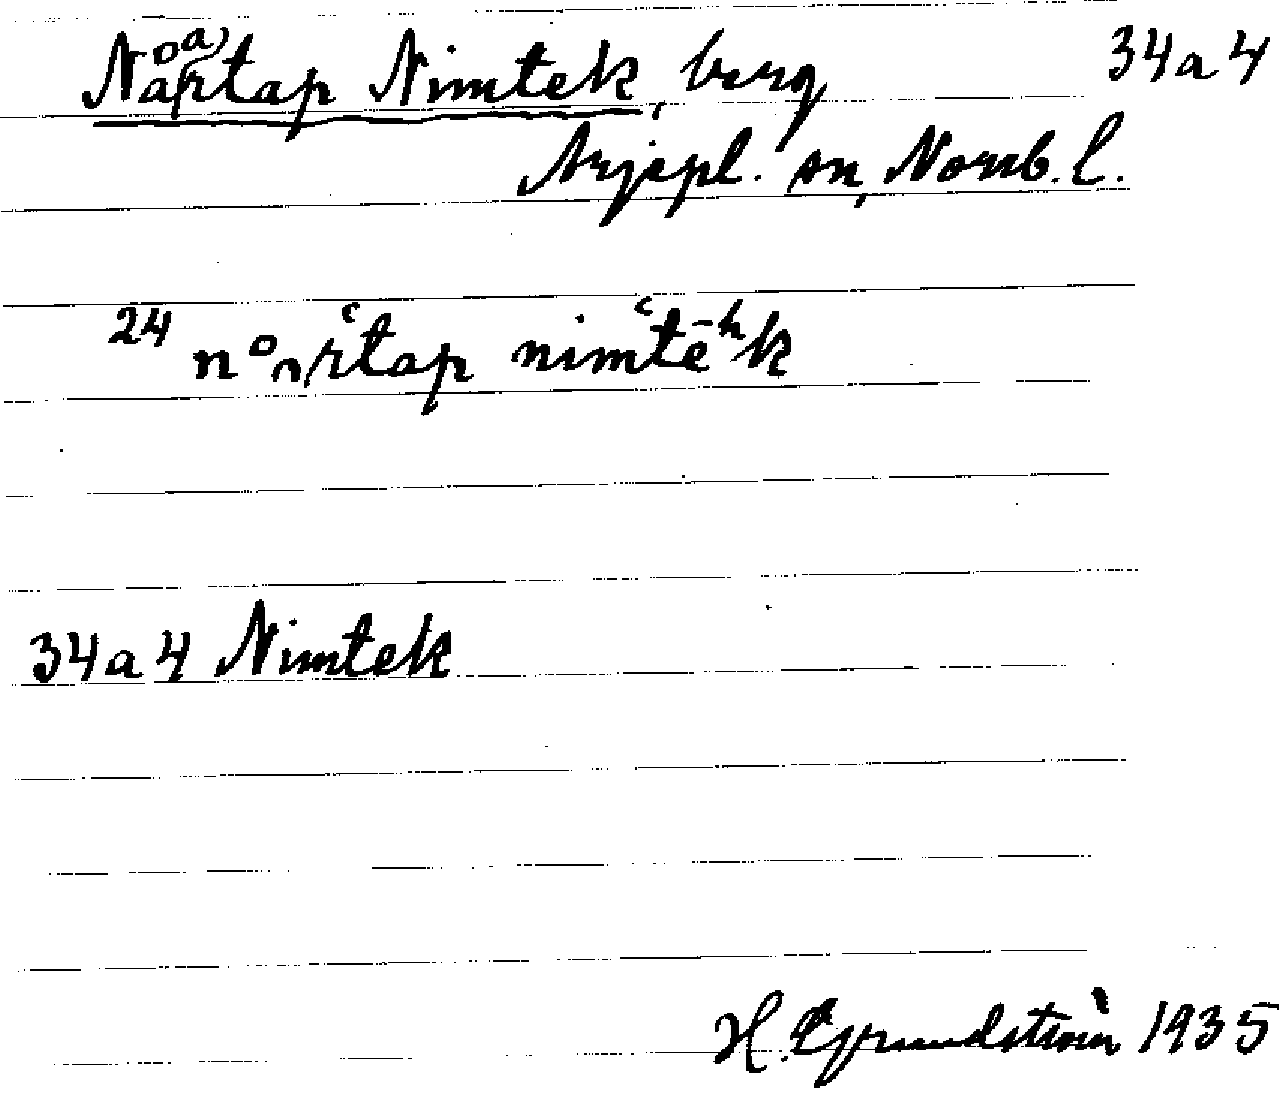 Nårtap Nimtek, berg 34a4
Arjepl. sn, Norrb. l.
24 n nimtēʰk
34a4 Nimtek
H. Grundström 1935